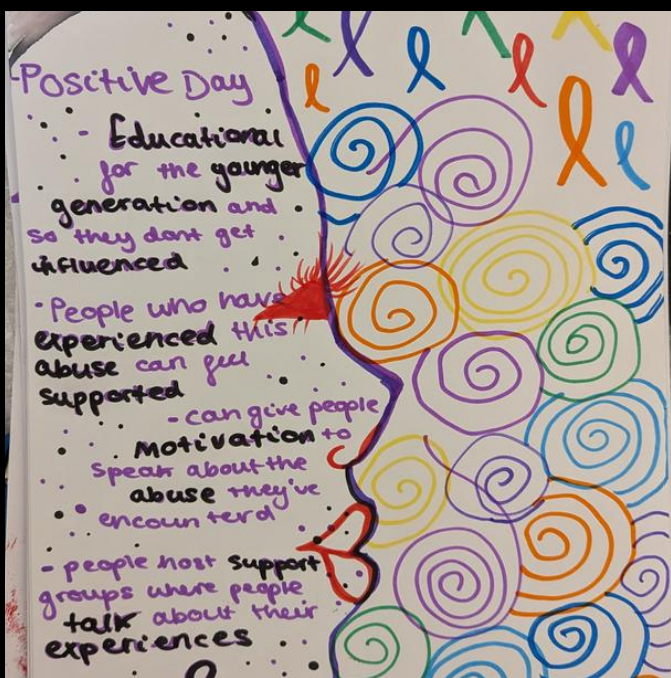 -Positive Day
- Educational
for the younger
generation and
so they dont get
influenced
- People who have
experienced this
abuse can feel
supported
- can give people
motivation to
speak about the
abuse they've
encounterd
- people host support
groups where people
talk about their
experiences